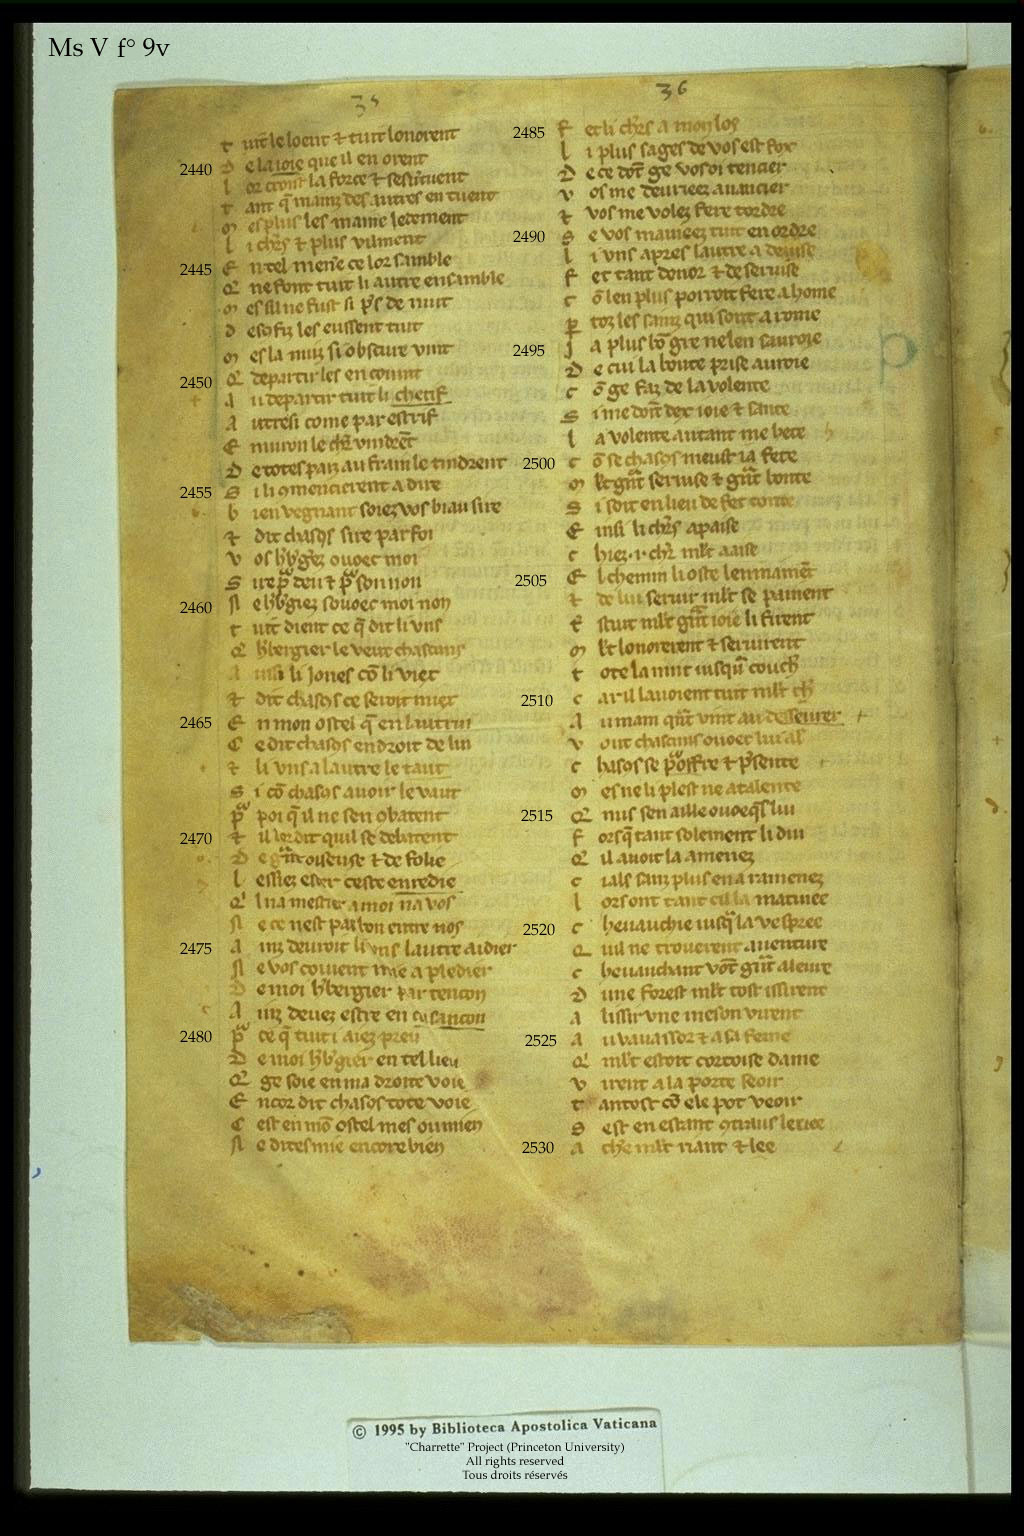 Ms V f° 9v
35
36
t uit le loent & tuit lonorent
2440
D e la ioie que il en orent
l or croist la force &
t ant q̄ mainz des autres en tuent
m es plus les maine ledement
l i chr̄s & plus vilment
2445
E n tel meniere ce lor samble
Q ne font tuit li autre ensamble
m es sil ne fust si p̃s de nuit
d les eussent tuit
m es la nuiz si obscure vint
2450
Q departir les en couint
A u departir tuit li chetif
A utresi come par estrif
E nuiron le chr̄ vindrēt
D e totes parz au frain le tindrent
2455
S i li 9mencierent a dire
b ien vegnant soiez vos biau sire
& dit chascs sire par foi
v os h̄bgez ouoec moi
S ire p̃ deu & p̃ son non
2460
N e h̄bgiez souoec moi non
t uit dient ce q̄ dit li vns
Q h̄bergier le veut chascuns
A insi li Jones cō li viez
& dit chascs ce seroit miez
2465
E n mon ostel q̄ en lautrui
C e dit chascs endroit de lui
& li vns a lautre le taut
S i cō chascs auoir le vaut
p̃ poi q̄ il ne sen obatent
2470
& il lor dit quil se debatent
D e g̃nt oiseuse & de folie
L essiez ester ceste enredie
Q l na mestier a moi na vos
N e ce nest pas bon entre nos
2475
A inz deuroit li vns lautre aidier
N e vos couient mie a pledier
D e moi h̄bergier par tencon
A inz deuez estre en cusancon
2480
p̃ ce q̄ tuit i aiez preu
D e moi h̄bgier en tel lieu
Q ge soie en ma droite voie
E ncor dit chascs tote voie
C est en mō ostel mes ou mien
N e dites mie encore bien
2485
F et li chr̄s a mon los
l i plus sages de vos est fox
D e ce dōt ge vos oi tencier
v os me deuriez auancier
& vos me volez fere tordre
2490
S e vos mauieez tuit en ordre
l i vns apres lautre a deuise
f et tant donor & de seruise
c ō len plus porroit fere a home
p toz les sainz qui sont a rome
2495
J a plus bō gre nelen sauroie
D e cui la bonte prise auroie
c ō ge faz de la volente
S i me doīt dex ioie & sante
l a volente autant me hete
2500
c ō se chascs meust ia fete
m l̄t g̃nt seruise & g̃nt bonte
S i soit en lieu de fet conte
E insi li chr̄s apaise
c hiez .i. chr̄ ml̄t aaise
2505
E l chemin li oste lenmainēt
& de lui seruir ml̄t se painent
t stuit ml̄t g̃nt ioie li firent
m l̄t lonorerent & seruirent
t ote la nuit iusqu couch
2510
c ar il lauoient tuit ml̄t ch
A u main q̃nt vint au desseurer
v out chascuns ouoec lui al
c hascs se poffre & p̃sente
m es ne li plest ne atalente
2515
Q nus sen aille ouoeqs lui
f ors q̄ tant solement li dui
Q il auoit la amenez
c ials sanz plus en a ramenez
l or sont tant cil la matinee
2520
c heuauchie iusq̄ la vespree
Q uil ne trouerent auenture
c heuauchant vōt g̃nt aleure
D une forest ml̄t tost issirent
a lissir vne meson virent
2525
A u vauassor & a sa feme
Q ml̄t estoit cortoise dame
v irent a la porte seoir
t antost cō ele pot veoir
S est en estant 9traus leuee
2530
a che ml̄t riant & lee
© 1995 by Biblioteca Apostolica Vaticana
"Charrette" Project (Princeton University)
All rights reserved
Tous droits réservés